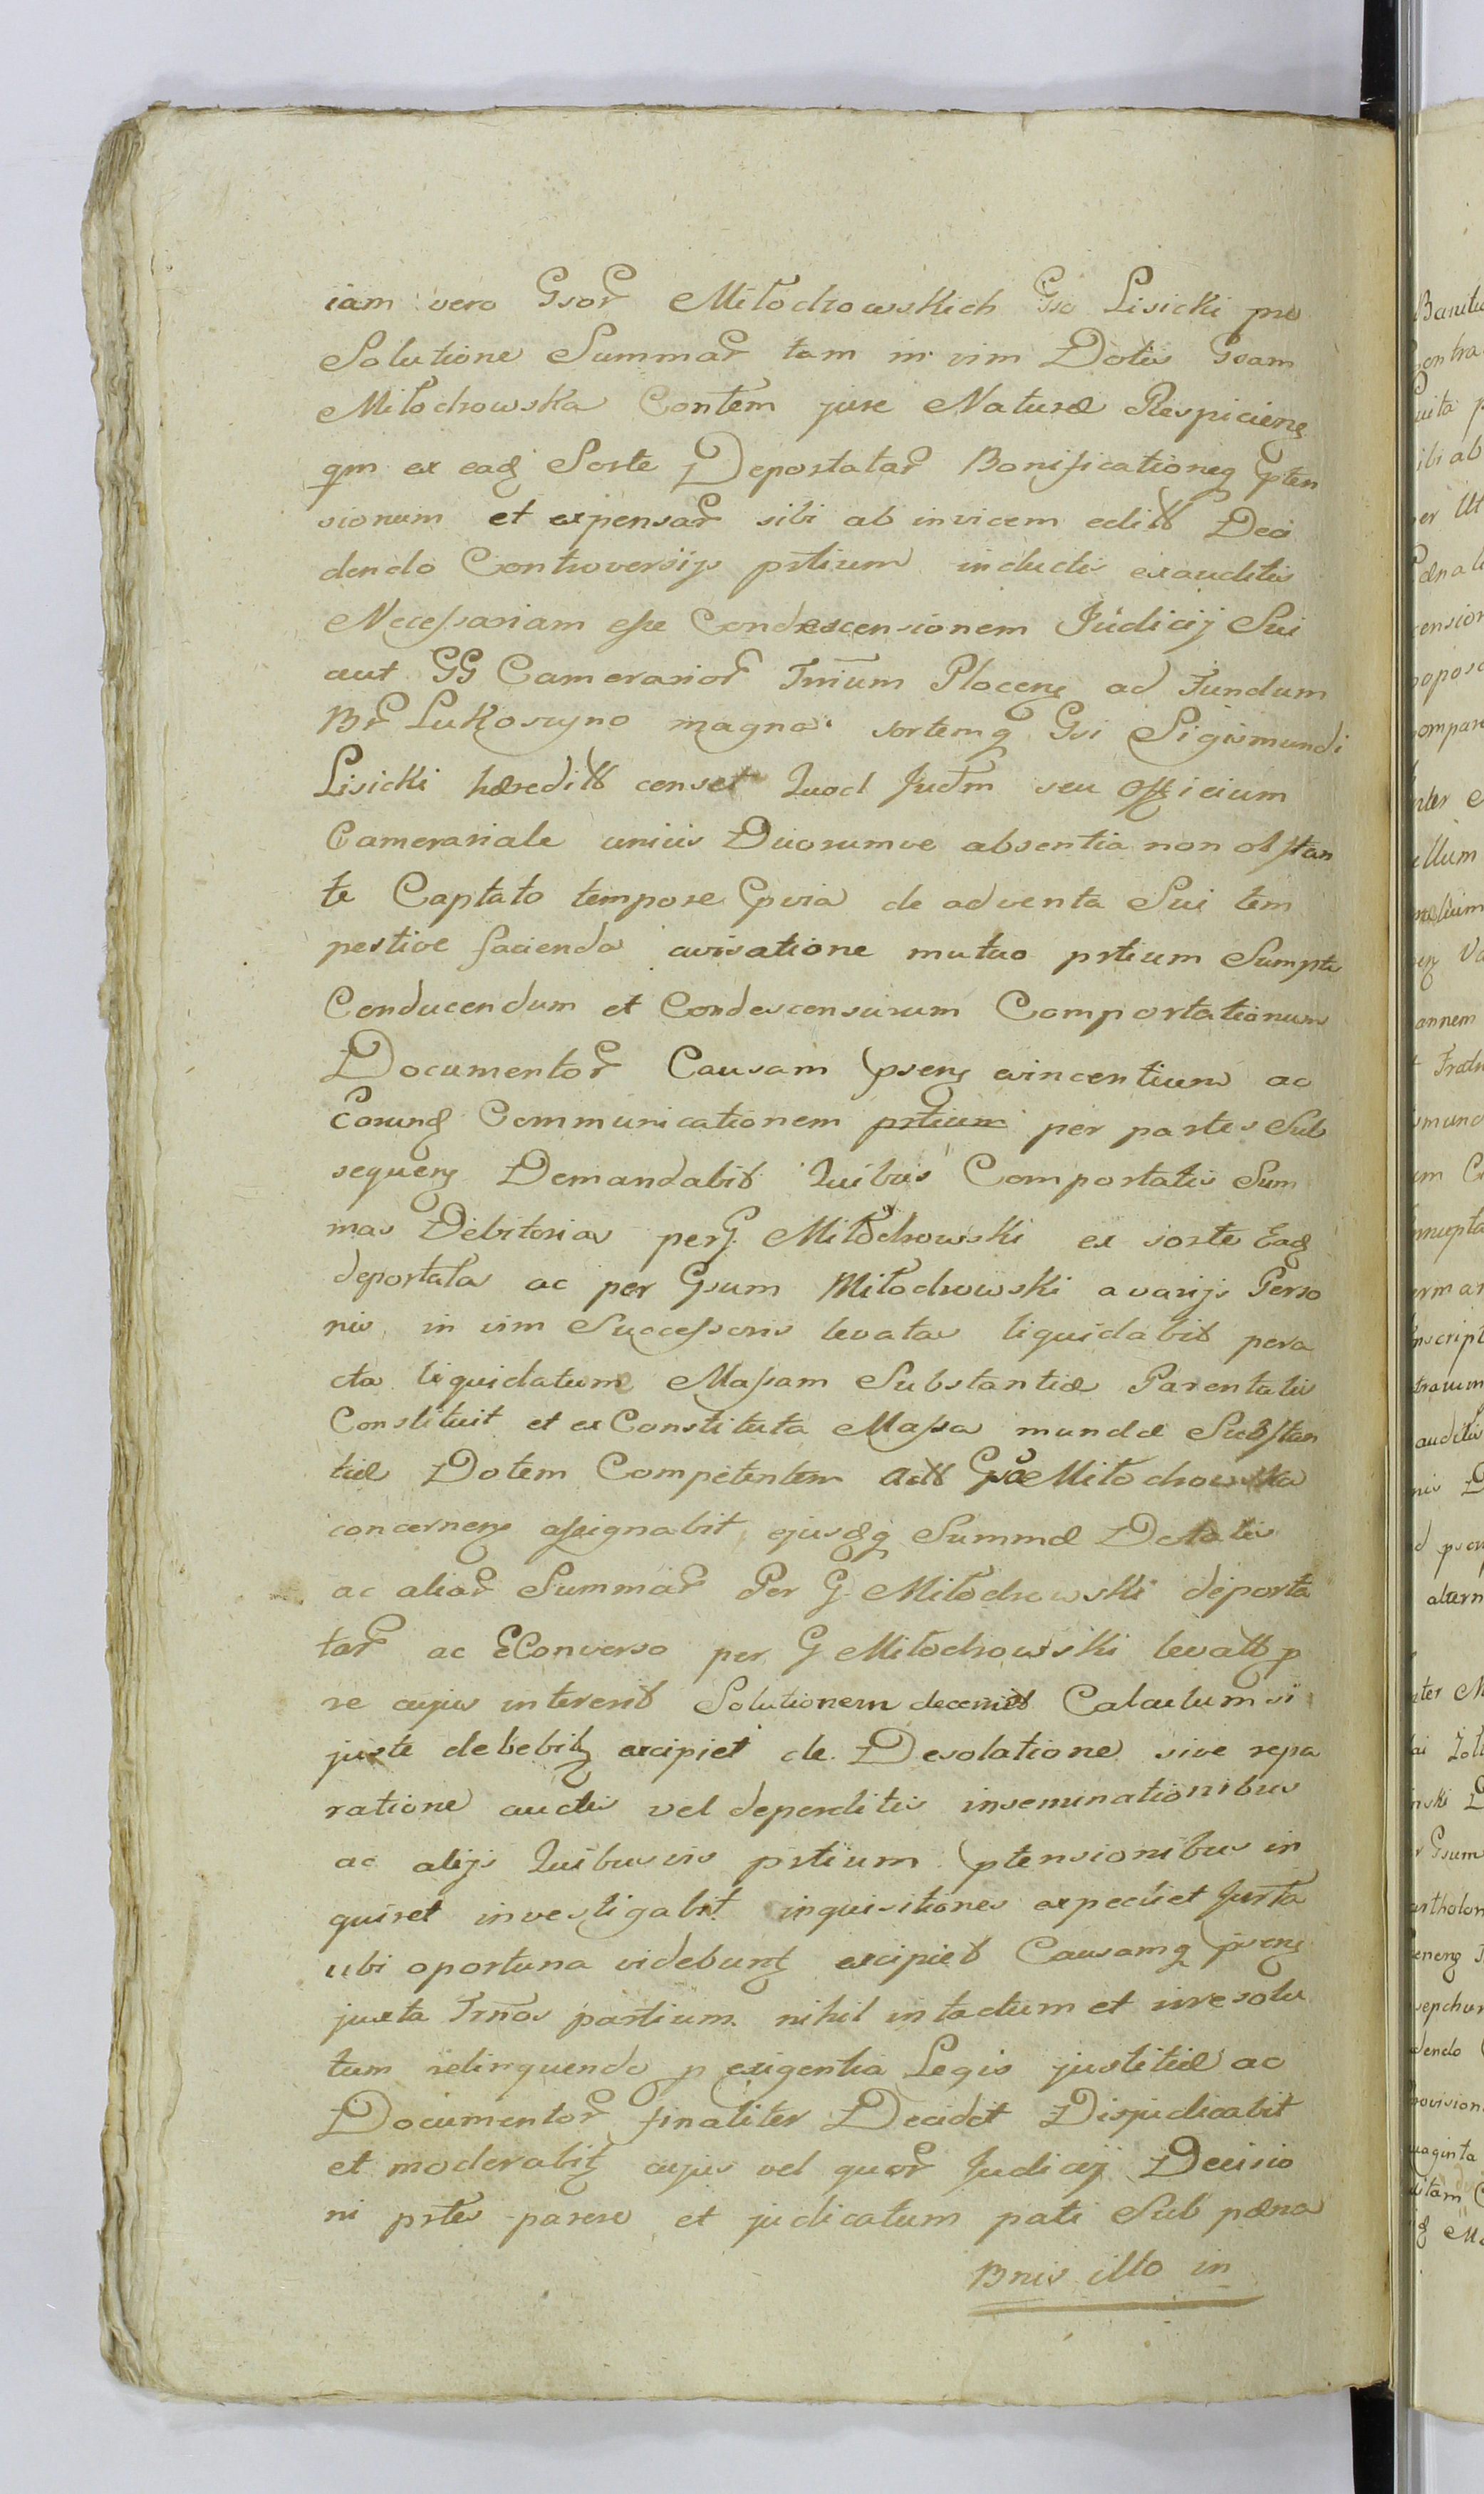 iam vero Gsor Miłochowskich Gso Lisicki pro
Solutione Summar tam in vim Dotis Gsam
Miłochowska Contem jure Naturæ Respiciens
qm ex ead Sorte Deportatar Bonificationeq pten
sionum et expensar sibi ab invicem edit Deci
dendo Controversijs prtium inductis exauditis
Necessariam esse Condescensionem Judicij Sui
aut GG Camerarior Trium Plocens ad Fundum
Br Lukoszyno magna sortemq Gsi Sigismundi
Lisicki hæredit censet Quod Judm seu Officium
Camerariale unius Duorumve absentia non obstan
te Captato tempore pvia de adventa Sui tem
pestive facienda avisatione mutuo prtium Sumptu
Conducendum et Condescensurum Comportationum
Documentor Causam psens evincentium ac
Eorund Communicationem prtium per partes Sub
sequens Demandabit Quibus Comportatis Sum
mas Debitorias per G. Miłochowski ex sorte Ead
deportata ac per Gsum Miłochowski a varijs Perso
nis in vim Successoris levatas liquidabit pera
cta liquidatum Massam Substantiæ Parentalis
Constituit et ex Constituta Massa mundæ Substan
tiæ Dotem Competentem Gsæ Miłochowska
concernens assignabit ejusdq Summæ Dotalis
ac aliar Summar Per G. Miłochowski deporta
tar ac EConverso per G Miłochowski levat p
re cujus intererit Solutionem decernet Calculum si
juste debebit excipiet de Desolatione sive repa
ratione auctis vel deperditis inseminationibus
ac alijs Quibusvis prtium ptensionibus in
quiret investigabit inquisitiones expediet Jurta
ubi oportuna videbunt excipiet Causamq psens
juxta Trnos partium nihil intactum et irresolu
tum relinquendo p exigentia Legis justitiæ ac
Documentor finaliter Decidet Disjudicabit
et moderabit cujus vel quor Judicij Decisio
ni prtes parere et judicatum pati Sub pæna
Bnis illo in